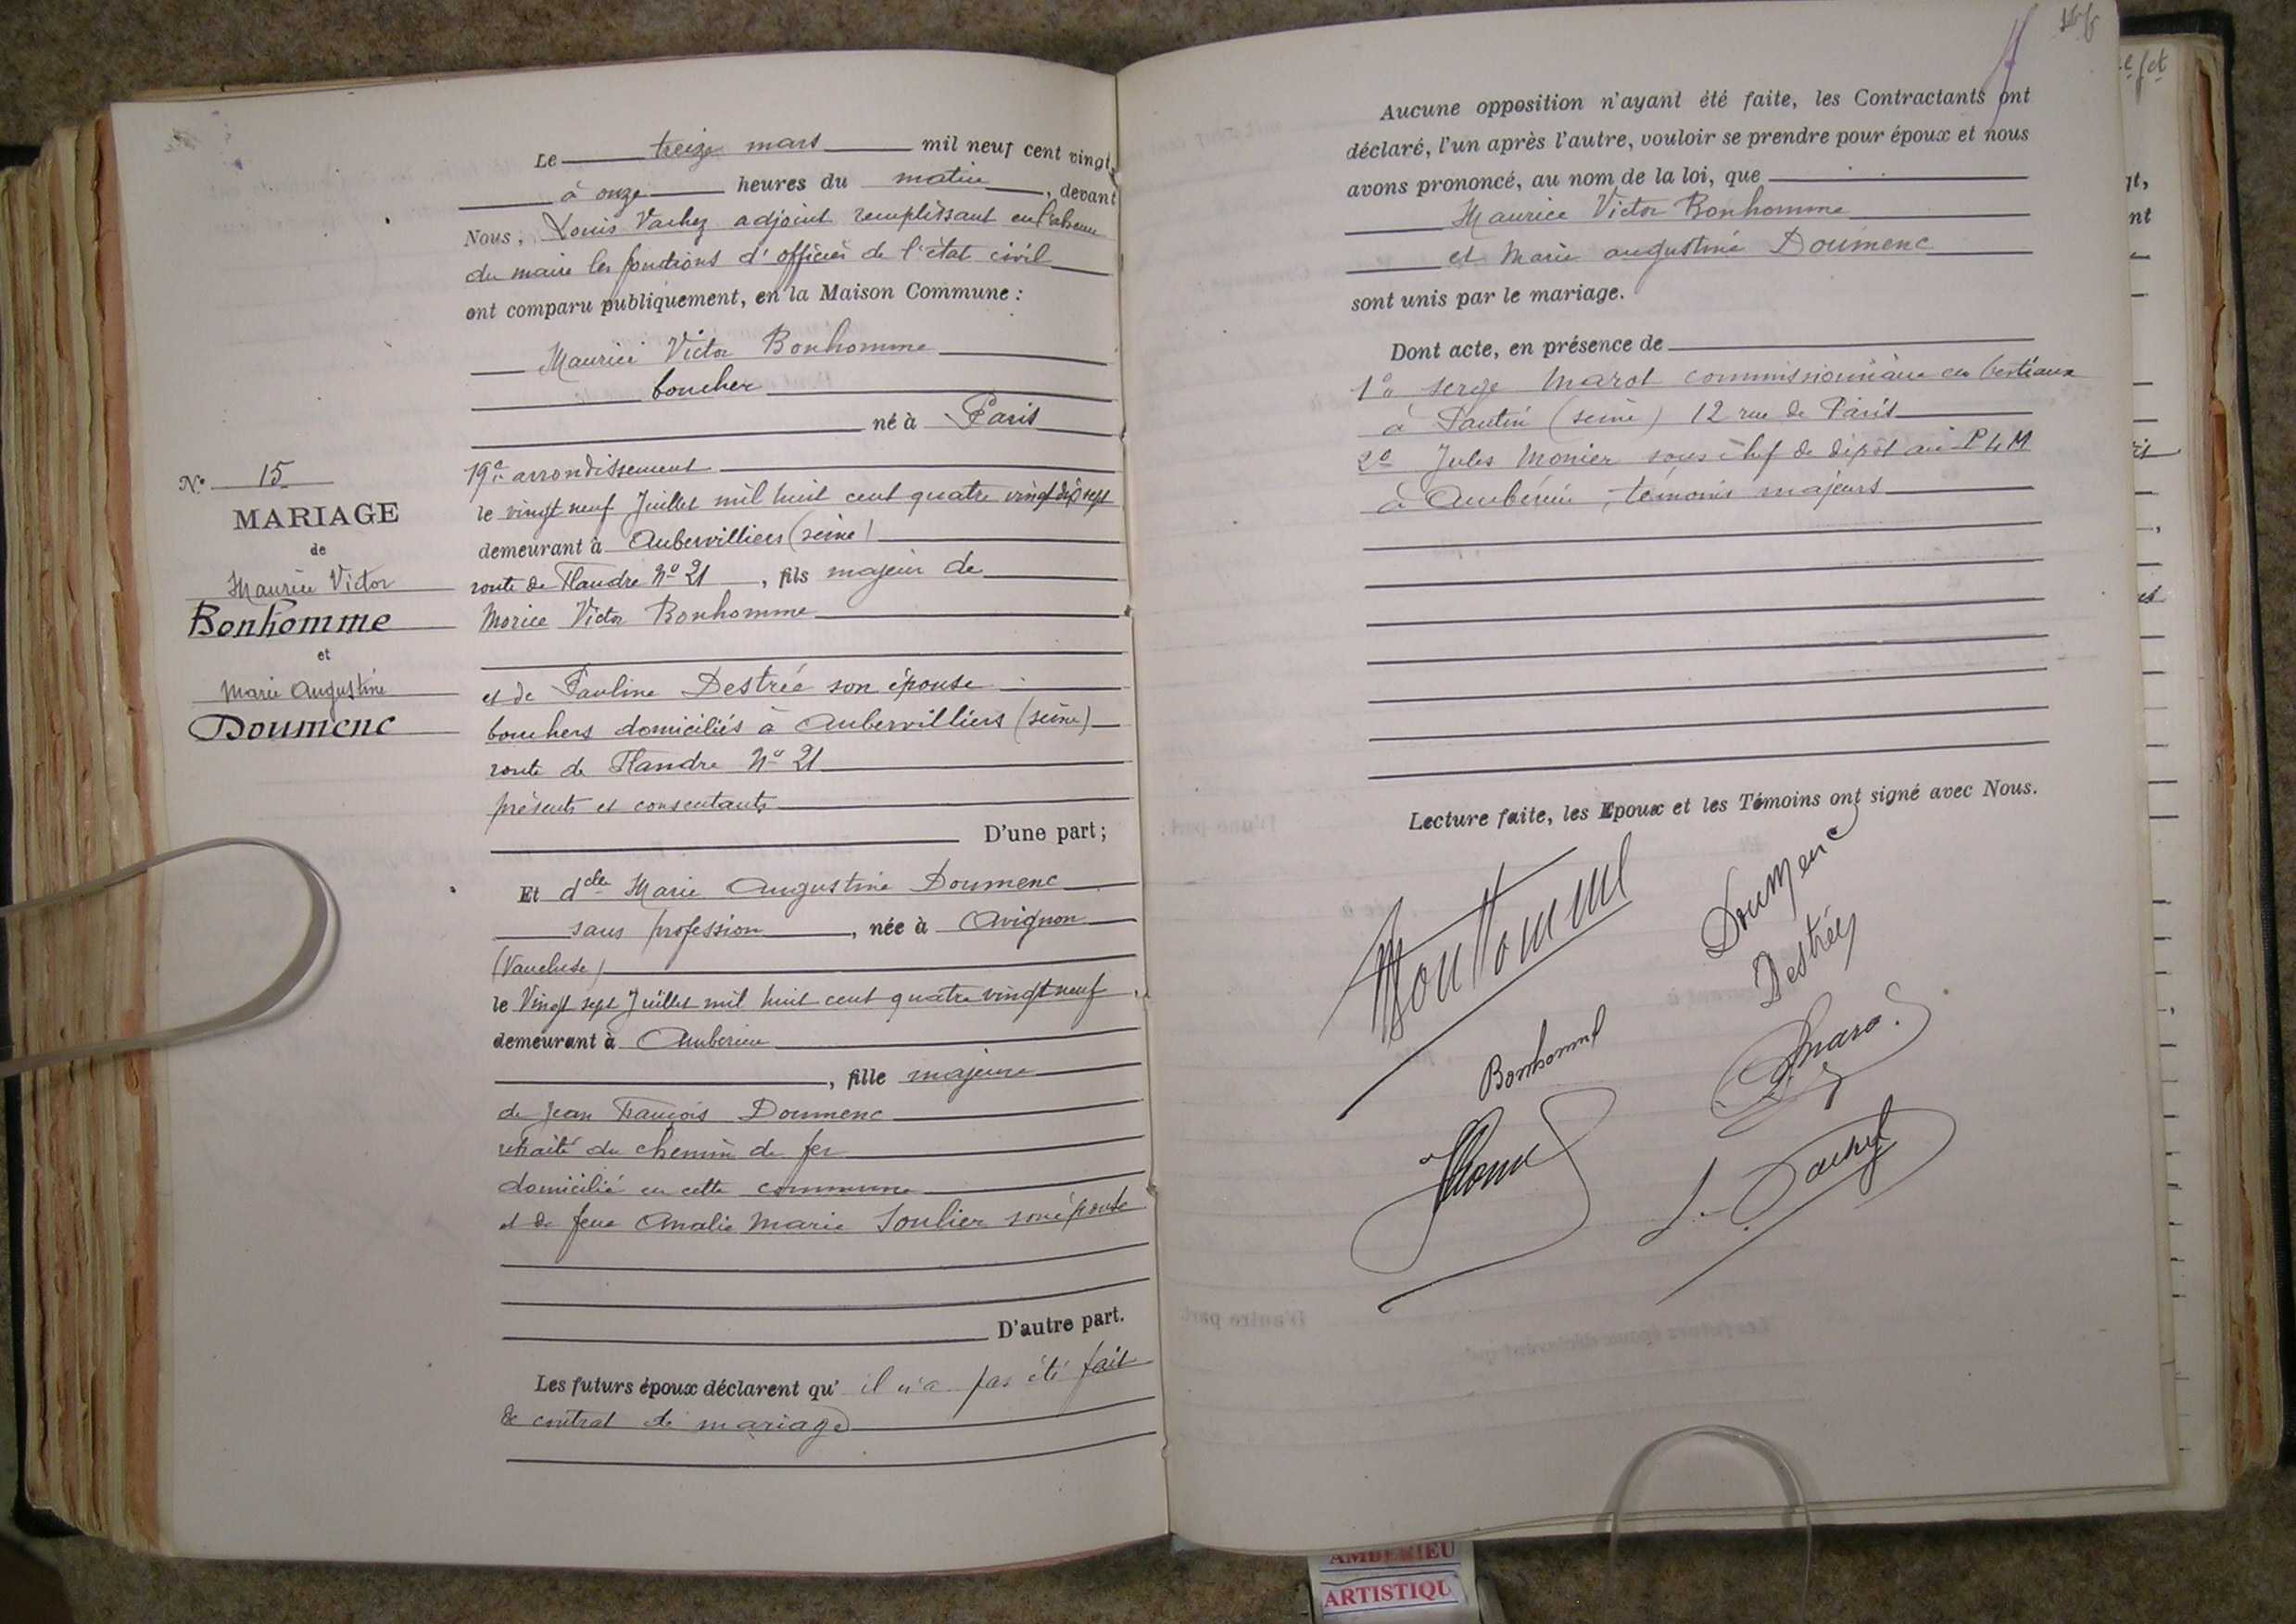 Le treize mars mil neuf cent vingt
à onze heures du matin, devant
Nous, Louis Vachez adjoint remplissant en l'absence
du maire les fonctions d'officier de l'état civil
ont comparu publiquement, en la Maison Commune :
Maurice Victor Bonhomme
boucher
né à Paris
19e arrondissement
le vingt neuf Juillet mil huit cent quatre vingt dix sept
demeurant à Aubervilliers (seine)
route de Flandre No 21, fils majeur de
Morice Victor Bonhomme
et de Pauline Destrée son épouse
bouchers domiciliés à Aubervilliers (seine)
route de Flandre No 21
présents et consentants
D'une part;
Et delle Marie Augustine Doumenc
sans profession, née à Avignon
(Vaucluse)
le Vingt sept Juillet mil huit cent quatre vingt neuf
demeurant à Ambérieu
, fille majeure
de Jean François Doumenc
retraité du chemin de fer
domicilié en cette commune
et de feue Amalie Marie Soulier son épouse
D'autre part.
Les futurs époux déclarent qu'il n'a pas été fait
de contrat de mariage
No 15
MARIAGE
de
Maurice Victor
Bonhomme
et
Marie Augustine
Doumenc
Aucune opposition n'ayant été faite, les Contractants ont
déclaré, l'un après l'autre, vouloir se prendre pour époux et nous
avons prononcé, au nom de la loi, que
Maurice Victor Bonhomme
et Marie augustine Doumenc
sont unis par le mariage.
Dont acte, en présence de
1o serge Marot commissionnaire en bestiaux
à Pantin (seine) 12 rue de Paris
2o Jules Monier sous chef de dépôt au PLM
à Ambérieu, témoins majeurs
Lecture faite, les Epoux et les Témoins ont signé avec Nous.
Bonhomme
Doumenc
Destrée
Bonhomme
L. Vachez
AMBERIEU
ARTISTIQU